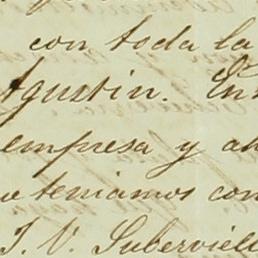 con toda la
Agustin. En
empresa y ah
e teniamos con
J. V. Suberviell